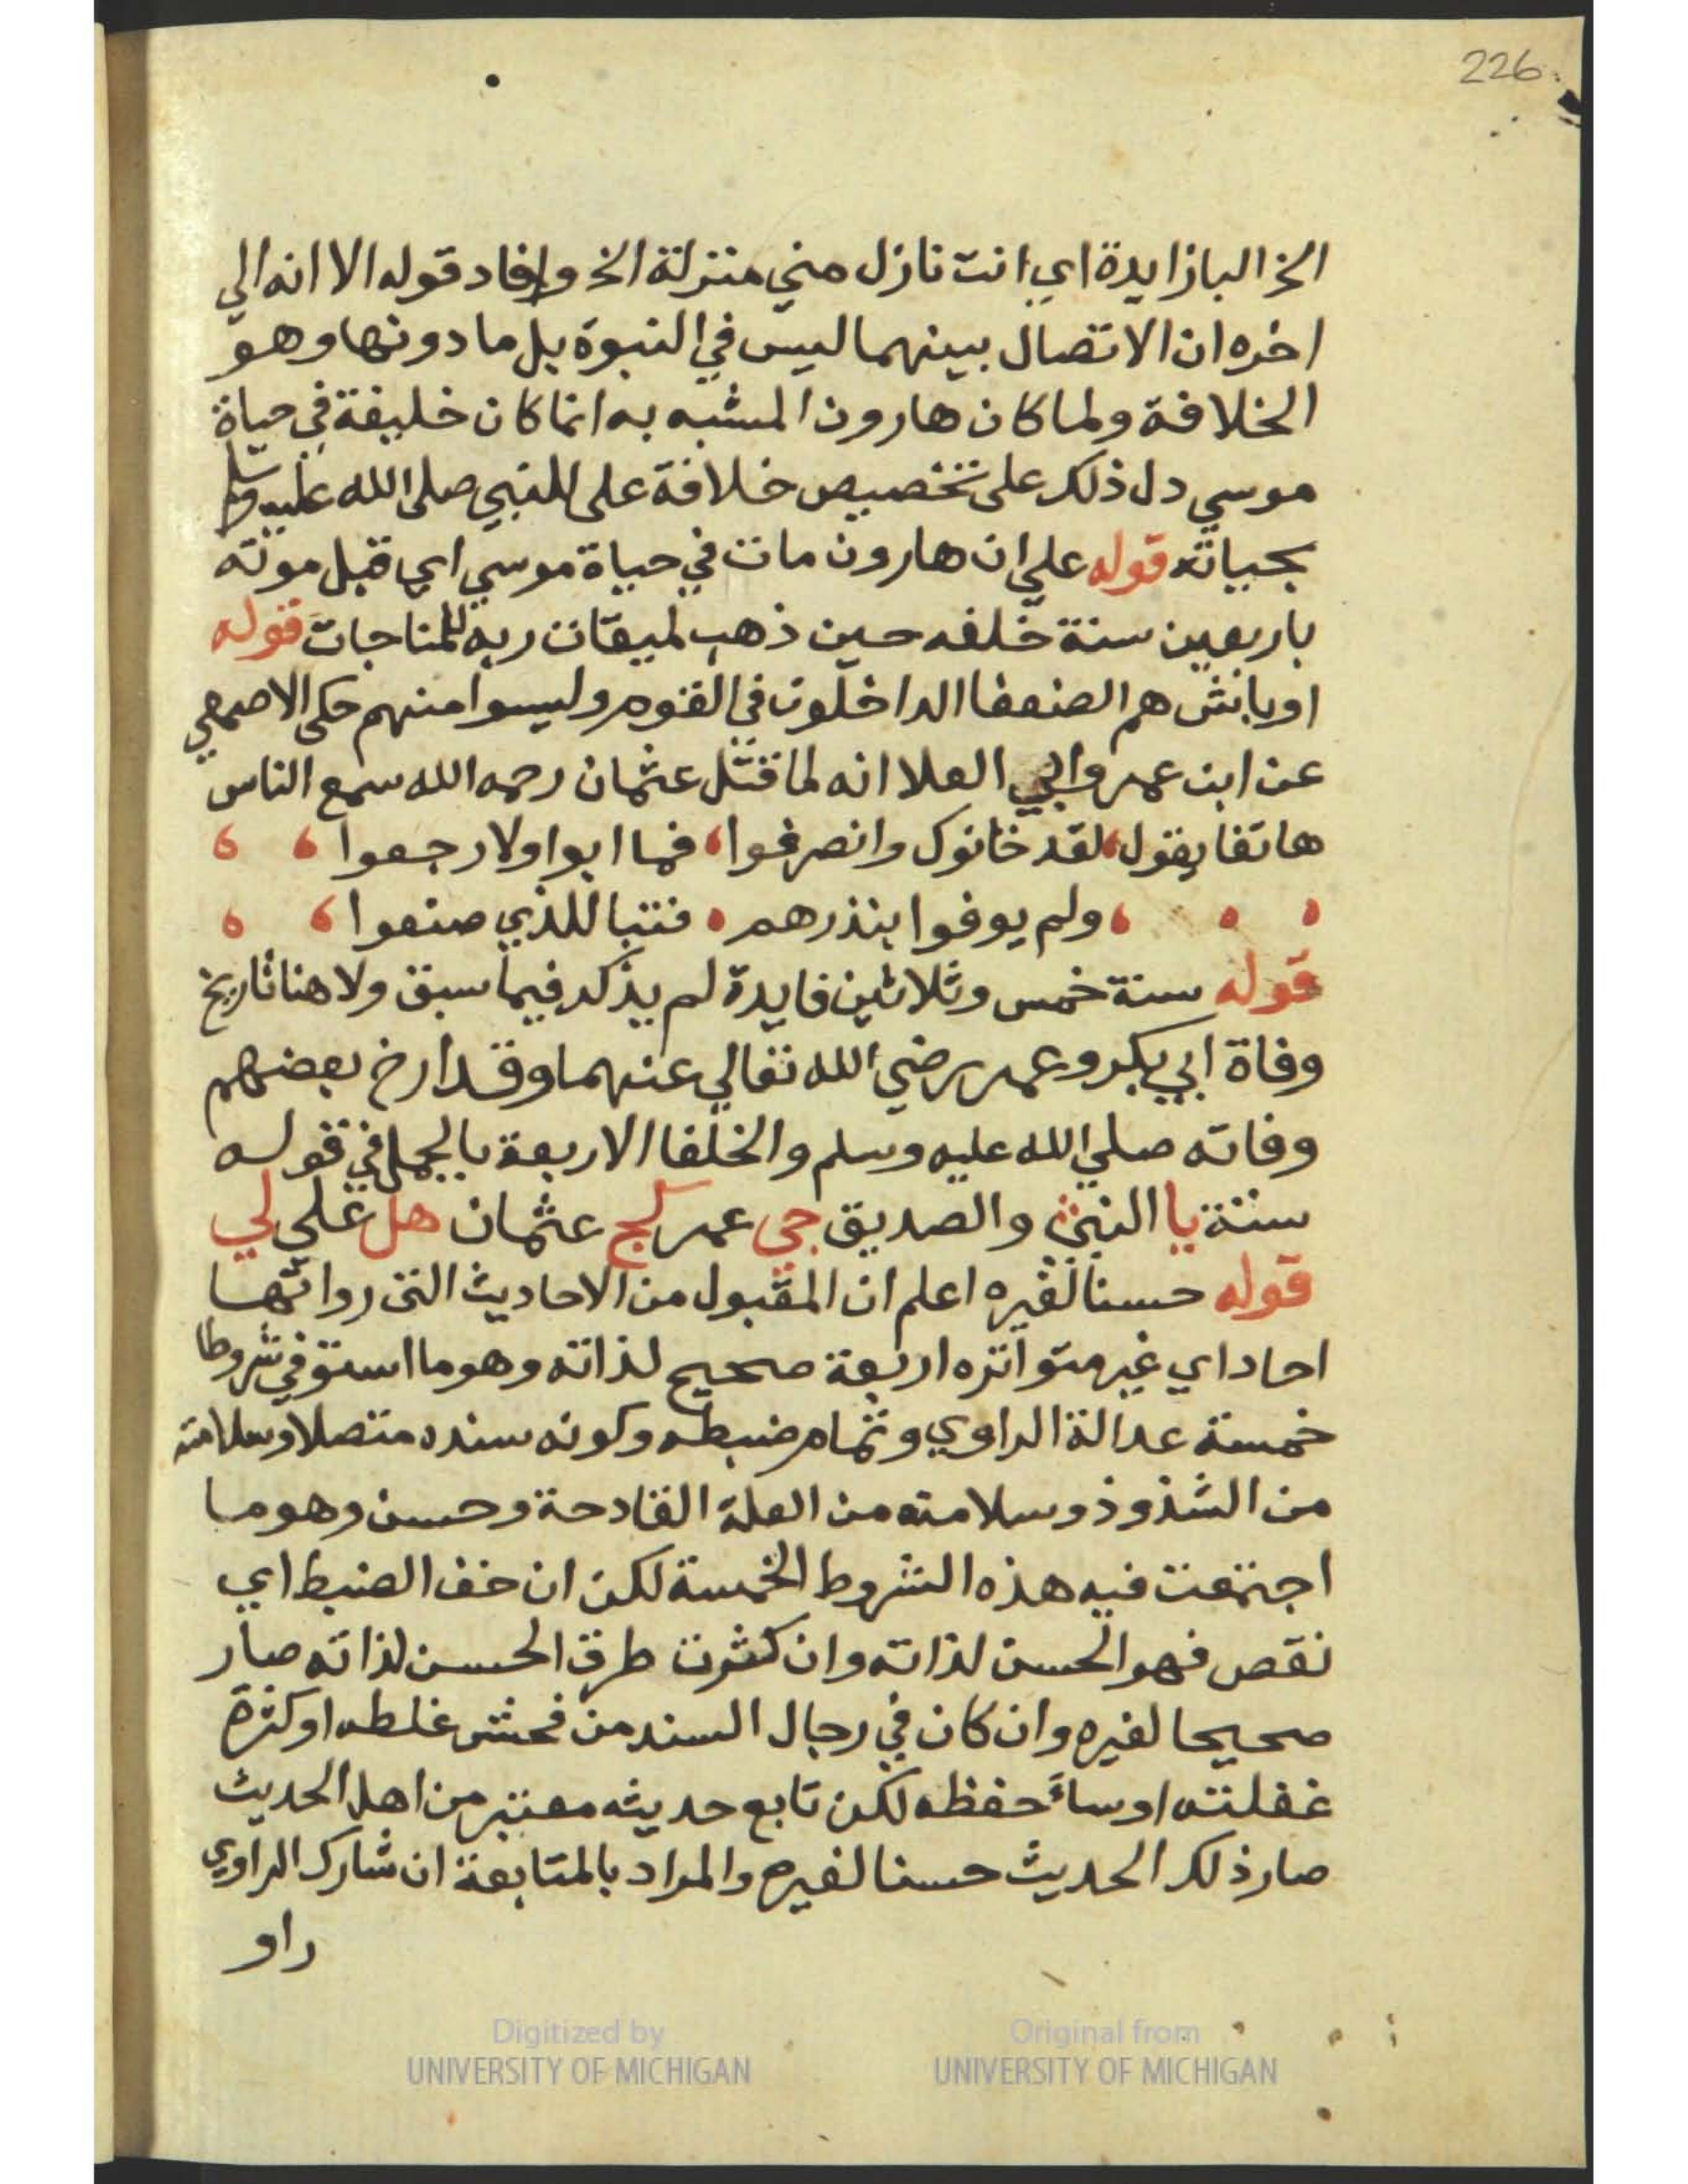 226
الخ البا زايدة اي انت نازل مني منزلة الخ وافاد قوله الا انه الي
اخره ان الاتصال بينهما ليس في النبوة بل ما دونها وهو
الخلافة ولما كان هارون المشبه به انما كان خليفة في حياة
موسي دل ذلك على تخصيص خلافة على للنبي صلى الله عليه وسلم
بحياته قوله علي ان هارون مات في حياة موسي اي قبل موته
باربعين سنة خلفه حين ذهب لميقات ربه للمناجات قوله
اوباش هم الضعفا الداخلون في القوم وليسوا منهم حكى الاصمعي
عن ابن عمر وابي العلا انه لما قتل عثمان رحمه الله سمع الناس
هاتفا يقول لقد خانوك وانصرفوا فما ابوا ولا رجعوا
ولم يوفوا بنذرهم فتبا للذي صنعوا
قوله سنة خمس وثلاثين فايدة لم يذكر فيما سبق ولا هنا تاريخ
وفاة ابي بكر وعمر رضي الله تعالي عنهما وقد ارخ بعضهم
وفاته صلي الله عليه وسلم والخلفا الاربعة بالجمل في قوله
سنة يا النبي والصديق جي عمر كج عثمان هل علي لي
قوله حسنا لغيره اعلم ان المقبول من الاحاديث التي رواتها
احاد اي غير متواتره اربعة صحيح لذاته وهو ما استوفي شروطا
خمسة عدالة الراوي وتمام ضبطه وكونه سنده متصلا وسلامته
من الشذوذ وسلامته من العلة القادحة وحسن وهو ما
اجتمعت فيه هذه الشروط الخمسة لكن ان خف الضبط اي
نقص فهو الحسن لذاته وان كثرت طرق الحسن لذاته صار
صحيحا لغيره وان كان في رجال السند من فحش غلطه او كثرة
غفلته او ساء حفظه لكن تابع حديثه معتبر من اهل الحديث
صار ذلك الحديث حسنا لغيره والمراد بالمتابعة ان شارك الراوي
راو
Digitized by
UNIVERSITY OF MICHIGAN
Original from
UNIVERSITY OF MICHIGAN